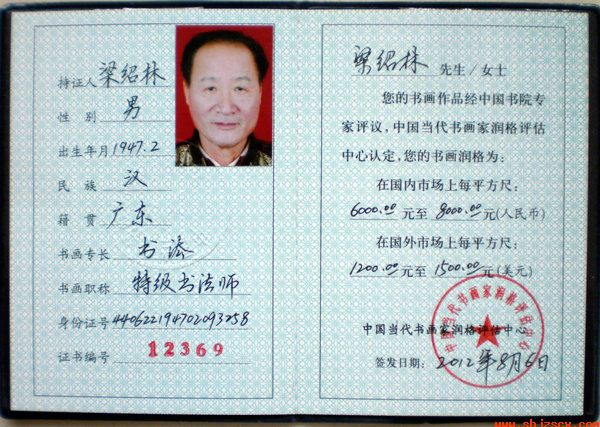 持证人 梁绍林
性别 男
出生年月 1947.2
民族 汉
籍贯 广东
书画专长 书法
书画职称 特级书法师
身份证号 440622194702093258
证书编号 12369
梁绍林 先生/女士
您的书画作品经中国书院专
家评议,中国当代书画家润格评估
中心认定,您的书画润格为:
在国内市场上每平方尺:
6000.00元至8000.00元(人民币)
在国外市场上每平方尺:
1200.00元至1500.00元(美元)
中国当代书画家润格评估中心
中国当代书画家润格评估中心
签发日期: 2012年8月6日
www.shjzscx.com